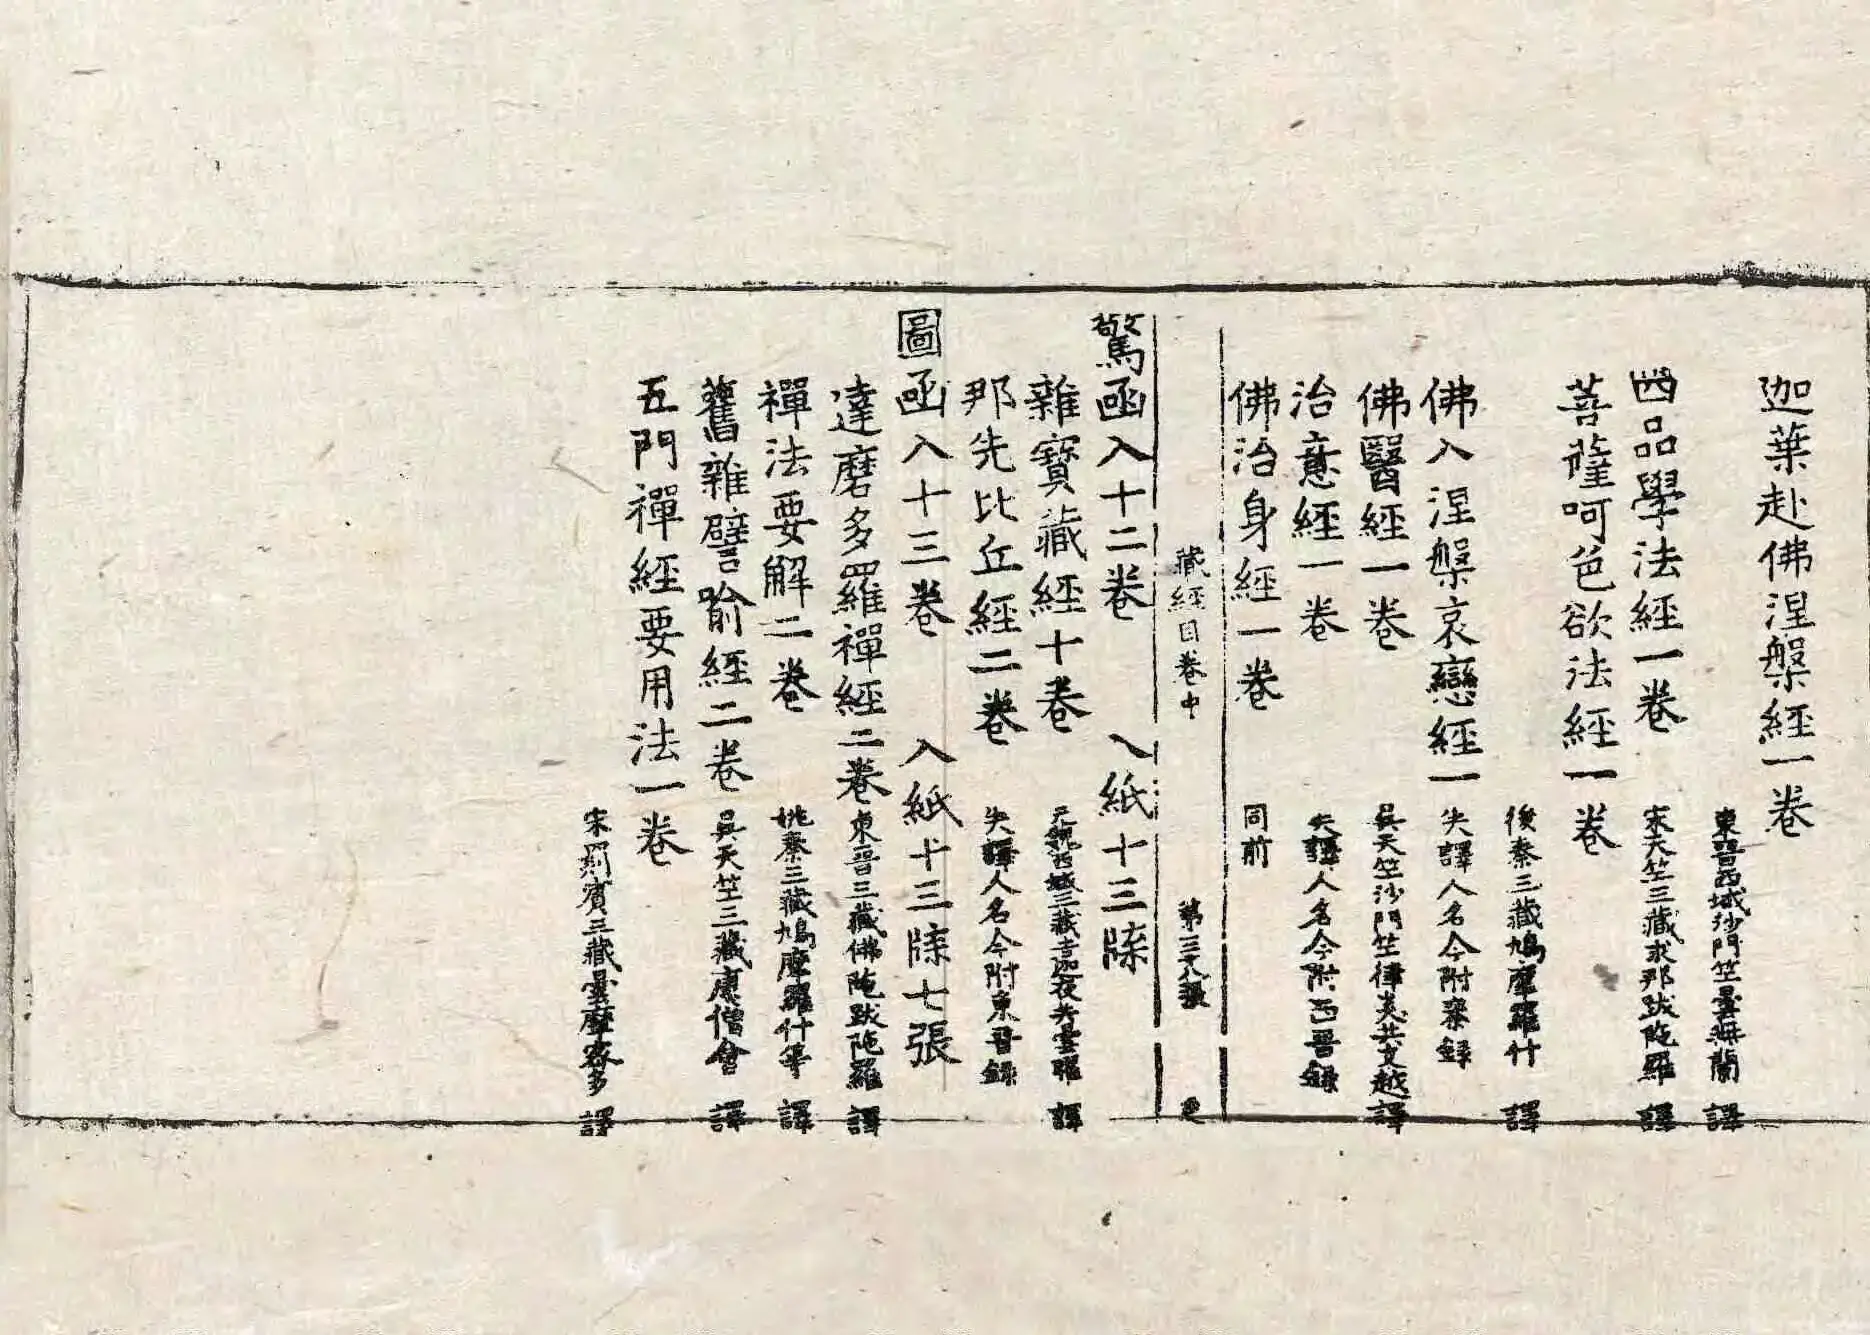 迦葉赴佛涅槃經一卷
東晉西域沙門竺曇無蘭 譯
四品學法經一卷 宋天竺三藏求那跋陁羅 譯
菩薩呵色欲法經一卷
後秦三藏鳩摩羅什 譯
佛入涅槃哀戀經一 失譯人名今附秦録
佛醫經一卷 吳天竺沙門竺律炎共支越譯
治意經一卷 失譯人名今附西晉録
佛治身經一卷 同前
藏經目卷中 第三十八張
驚函入十二卷 入紙十三牒
雜寶藏經十卷 元魏西域三藏吉迦夜共曇曜 譯
那先比丘經二卷 失譯人名今附東晉録
圖函入十三卷 入紙十三牒七張
達磨多羅禪經二卷 東晉三藏佛陁跋陁羅 譯
禪法要解二卷 姚秦三藏鳩摩羅什等 譯
舊雜譬喻經二卷 吳天竺三藏康僧會 譯
五門禪經要用法一卷
宋罽賓三藏曇摩蜜多 譯